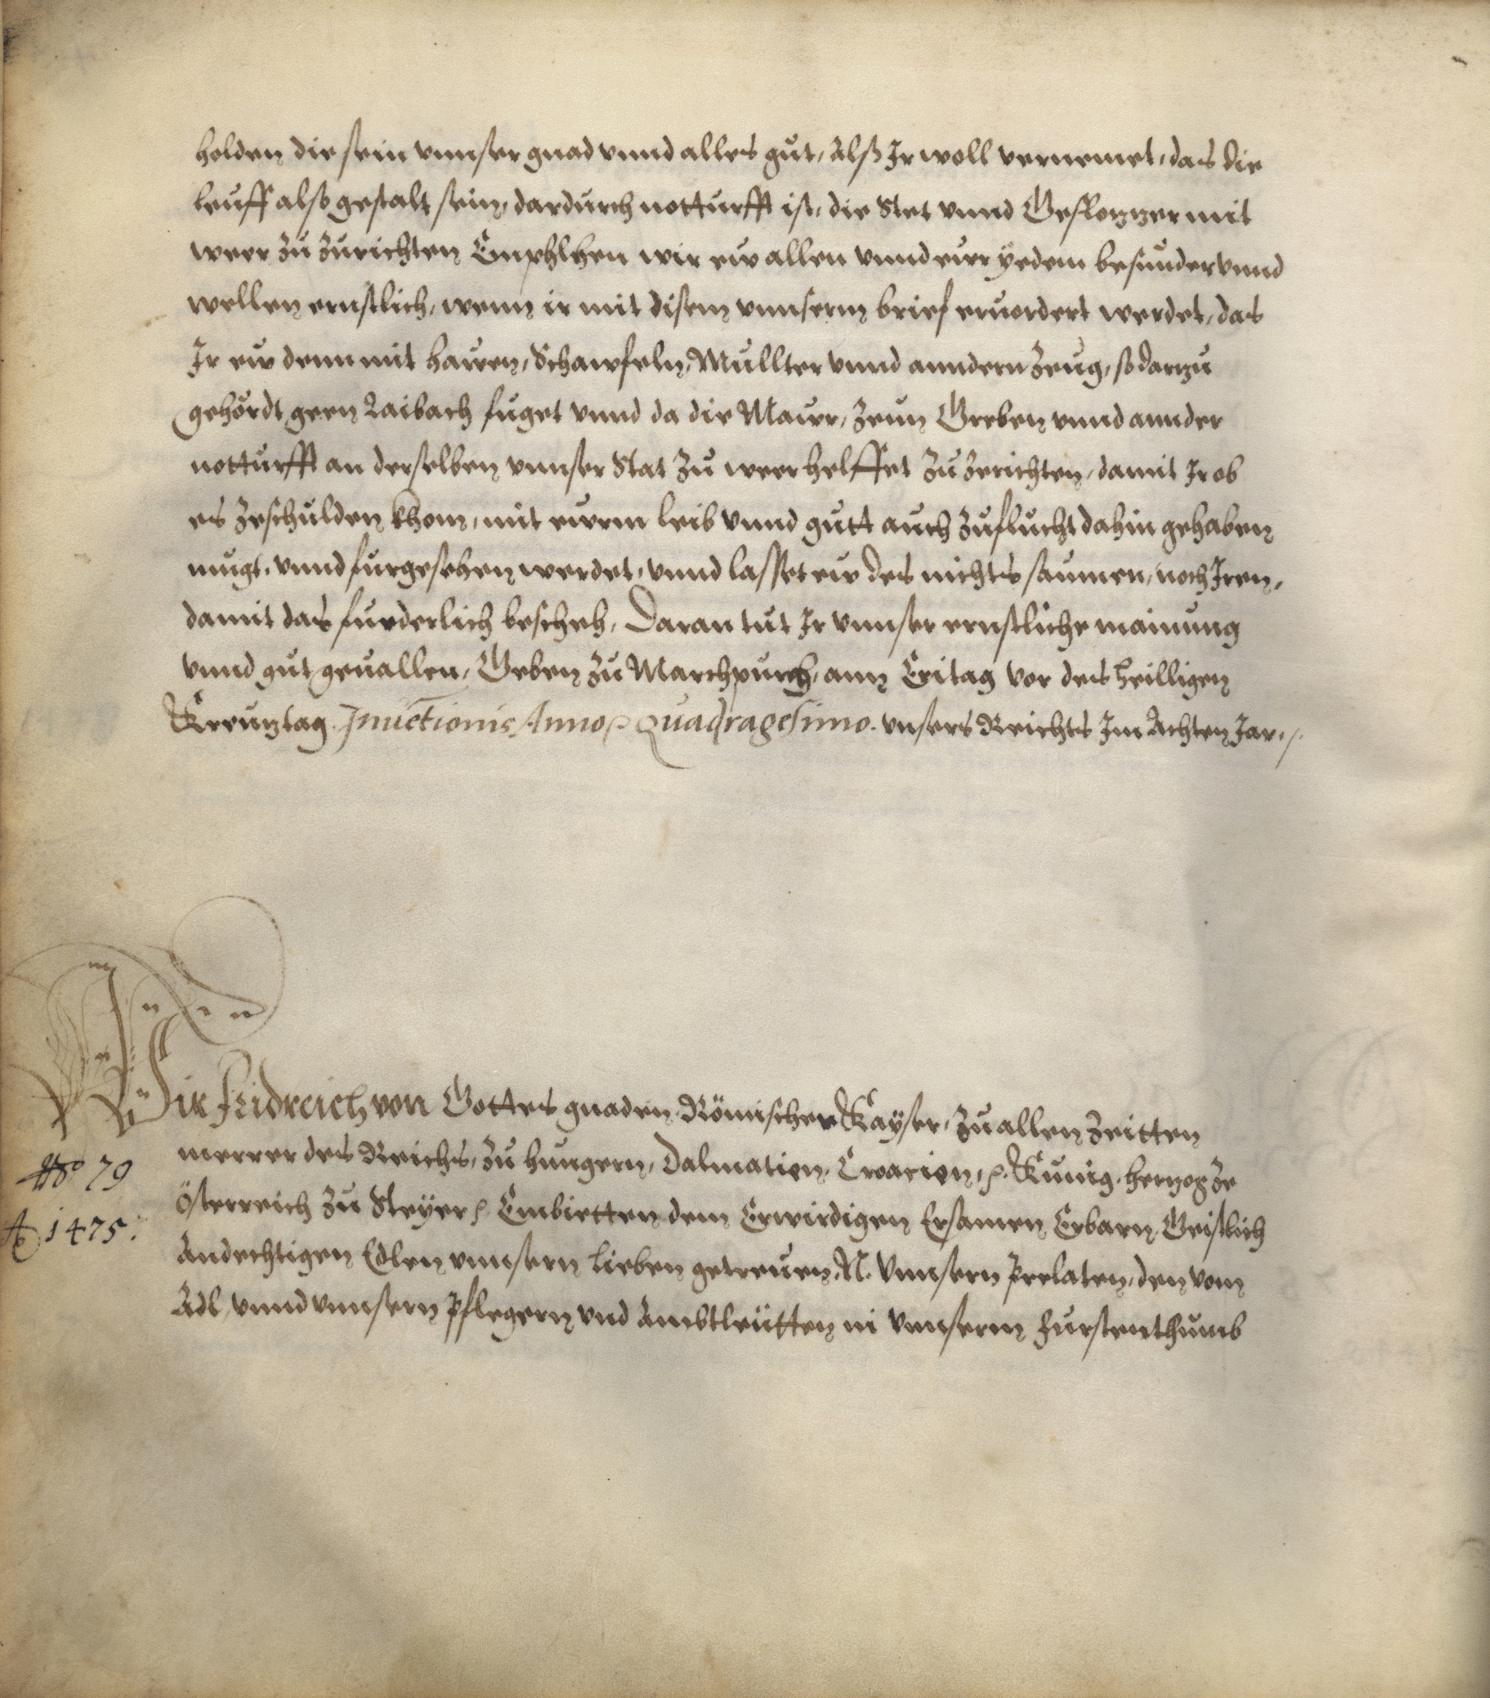 holden die sein vnnser gnad vnnd alles gůt, Alß Ir woll vernemet, das die
leuff alß gestalt sein, dardurch notturfft ist, die Stet vnnd Geslosszer mit
weer zů zurichten Emphlhen wir ew allen vnnd ewr yedem besunder vnnd
wellen ernstlich, wenn ir mit disem vnnserm brief eruordert werdet, das
Ir ew denn mit hawen, Schawfeln, Mullter vnnd anndern zeug, so darzu
gehördt geen Laibach fuget vnnd da die Mawr, zeun Greben vnnd annder
notturfft an derselben vnnser Stat zů weer helffet zů zerichten, damit Ir ob
es zeschulden khom, mit ewrm leib vnnd gutt auch zuflucht dahin gehaben
mugt, vnnd furgesehen werdet, vnnd lasset ew des nichts saumen, noch Iren,
damit das furderlich bescheh, Daran tut Ir vnnser ernstliche mainung
vnnd gut geuallen, Geben zů Marchpurch, ann Eritag vor des heilligen
Kreuztag Inuctionis Anno ꝛc Quadragesimo. vnsers Reichts Im Achten Jar. ꝛc.
Wir Fridreich von Gottes gnaden Römischer Kayser, zu allen zeitten
merrer des Reichs, zů hungern, Dalmatien, Croacien, ꝛc. Kunig, herzog ze
Österreich zů Steyer ꝛc Embietten dem Erwirdigen Ersamen Erbarn Geistlich
Andechtigen Edlen vnnsern lieben getreuen, N. Vnnsern Prelaten, den vom
Adl, vnnd vnnsern Pflegern vnd Ambtleütten in vnnserm Furstenthumb
No 79
A 1475: